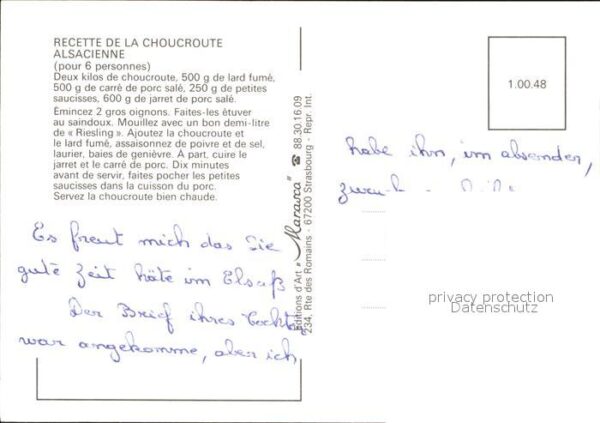 RECETTE DE LA CHOUCROUTE
ALSACIENNE
(pour 6 personnes)
Deux kilos de choucroute, 500 g de lard fumé,
500 g de carré de porc salé, 250 g de petites
saucisses, 600 g de jarret de porc salé.
Émincez 2 gros oignons. Faites-les étuver
au saindoux. Mouillez avec un bon demi-litre
de « Riesling ». Ajoutez la choucroute et
le lard fumé, assaisonnez de poivre et de sel,
laurier, baies de genièvre. À part, cuire le
jarret et le carré de porc. Dix minutes
avant de servir, faites pocher les petites
saucisses dans la cuisson du porc.
Servez la choucroute bien chaude.
Es freut mich das Sie
gute Zeit häte im Elsaß
Der Brief ihres
war angekomme, aber ich
Editions d'Art « Marasca » ☎ 88.30.16 09
234, Rte des Romains - 67200 Strasbourg - Repr. Int.
1.00.48
habe ihn, im absender,
privacy protection
Datenschutz